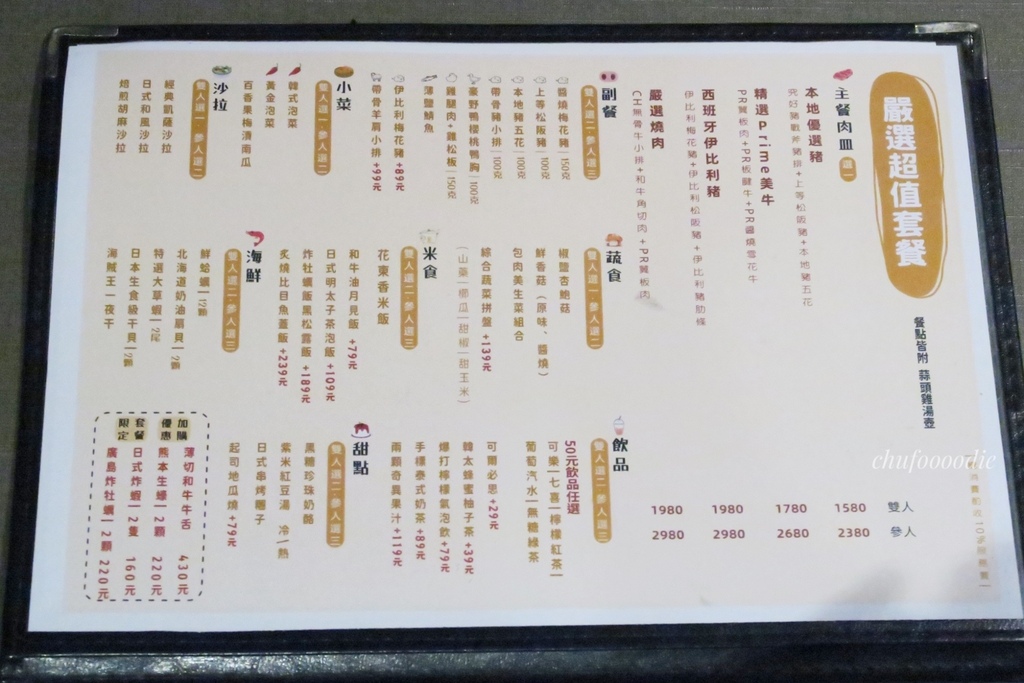 嚴選超值套餐
餐點皆附 蒜頭雞湯壺
主餐肉皿 選一
雙人 參人
本地優選豬 1580 2380
究好豬戰斧豬排+上等松阪豬+本地豬五花
精選Prime美牛 1780 2680
PR翼板肉+PR板腱牛+PR醬燒雪花牛
西班牙伊比利豬 1980 2980
伊比利梅花豬+伊比利松阪豬+伊比利豬肋條
嚴選燒肉 1980 2980
CH無骨牛小排+和牛角切肉+PR翼板肉
副餐
雙人選二·參人選三
醬燒梅花豬|150克
上等松阪豬|100克
本地豬五花|100克
帶骨豬小排|100克
豪野鴨櫻桃鴨胸|100克
雞腿肉+雞松板|150克
薄鹽鯖魚
伊比利梅花豬 +89元
帶骨羊肩小排 +99元
小菜
雙人選一·參人選二
韓式泡菜
黃金泡菜
百香果梅漬南瓜
沙拉
雙人選一·參人選二
經典凱薩沙拉
日式和風沙拉
焙煎胡麻沙拉
蔬食
雙人選一·參人選二
椒鹽杏鮑菇
鮮香菇(原味、醬燒)
包肉美生菜組合
綜合蔬菜拼盤 +139元
(山藥|櫛瓜|甜椒|甜玉米)
米食
雙人選二·參人選三
花東香米飯
和牛油月見飯 +79元
日式明太子茶泡飯 +109元
炸牡蠣飯黑松露飯 +189元
炙燒比目魚蓋飯 +239元
海鮮
雙人選二·參人選三
鮮蛤蠣|12顆
北海道奶油扇貝|2顆
特選大草蝦|2尾
日本生食級干貝|2顆
海賊王一夜干
飲品
雙人選二·參人選三
50元飲品任選
可樂|七喜|檸檬紅茶|
葡萄汽水|無糖綠茶
可爾必思 +29元
韓太蜂蜜柚子茶 +39元
爆打檸檬氣泡飲 +79元
手標泰式奶茶 +89元
兩顆奇異果汁 +119元
甜點
雙人選二·參人選三
黑糖珍珠奶酪
紫米紅豆湯 冷|熱
日式串烤糰子
起司地瓜燒 +79元
加購優惠
套餐限定
薄切和牛牛舌 430元
熊本生蠔|2顆 220元
日式炸蝦|2隻 160元
廣島炸牡蠣|2顆 220元
chufoooodie